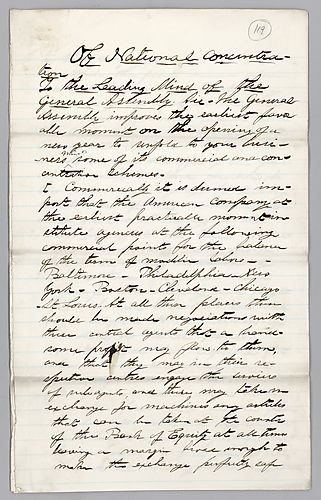 119
Of National concentra-
tion
To the Leading Mind of the
General Assembly &c - The General
Assembly improves the earliest favor
able moment on the opening of a
new year to unfold to your busi-
ness some of its commercial and con-
centration schemes.
1. Commercially it is deemed im-
port that the American company at
the earliest practicable moment in-
stitute agencies at the following
commercial points for the balance
of the term of
Baltimore - Philadelphia - New
York - Boston - Cleveland - Chicago
St Louis. At all these places there
should be made negociations with
three central agents that a hand-
some profit may flow to them,
and that they may in their re-
spective centres engage the services
of subagents and these may take in
exchange for machines any articles
that can be taken at the counter
of the Bank of Equity at all times
leaving a margin broad enough to
make the exchange perfectly safe